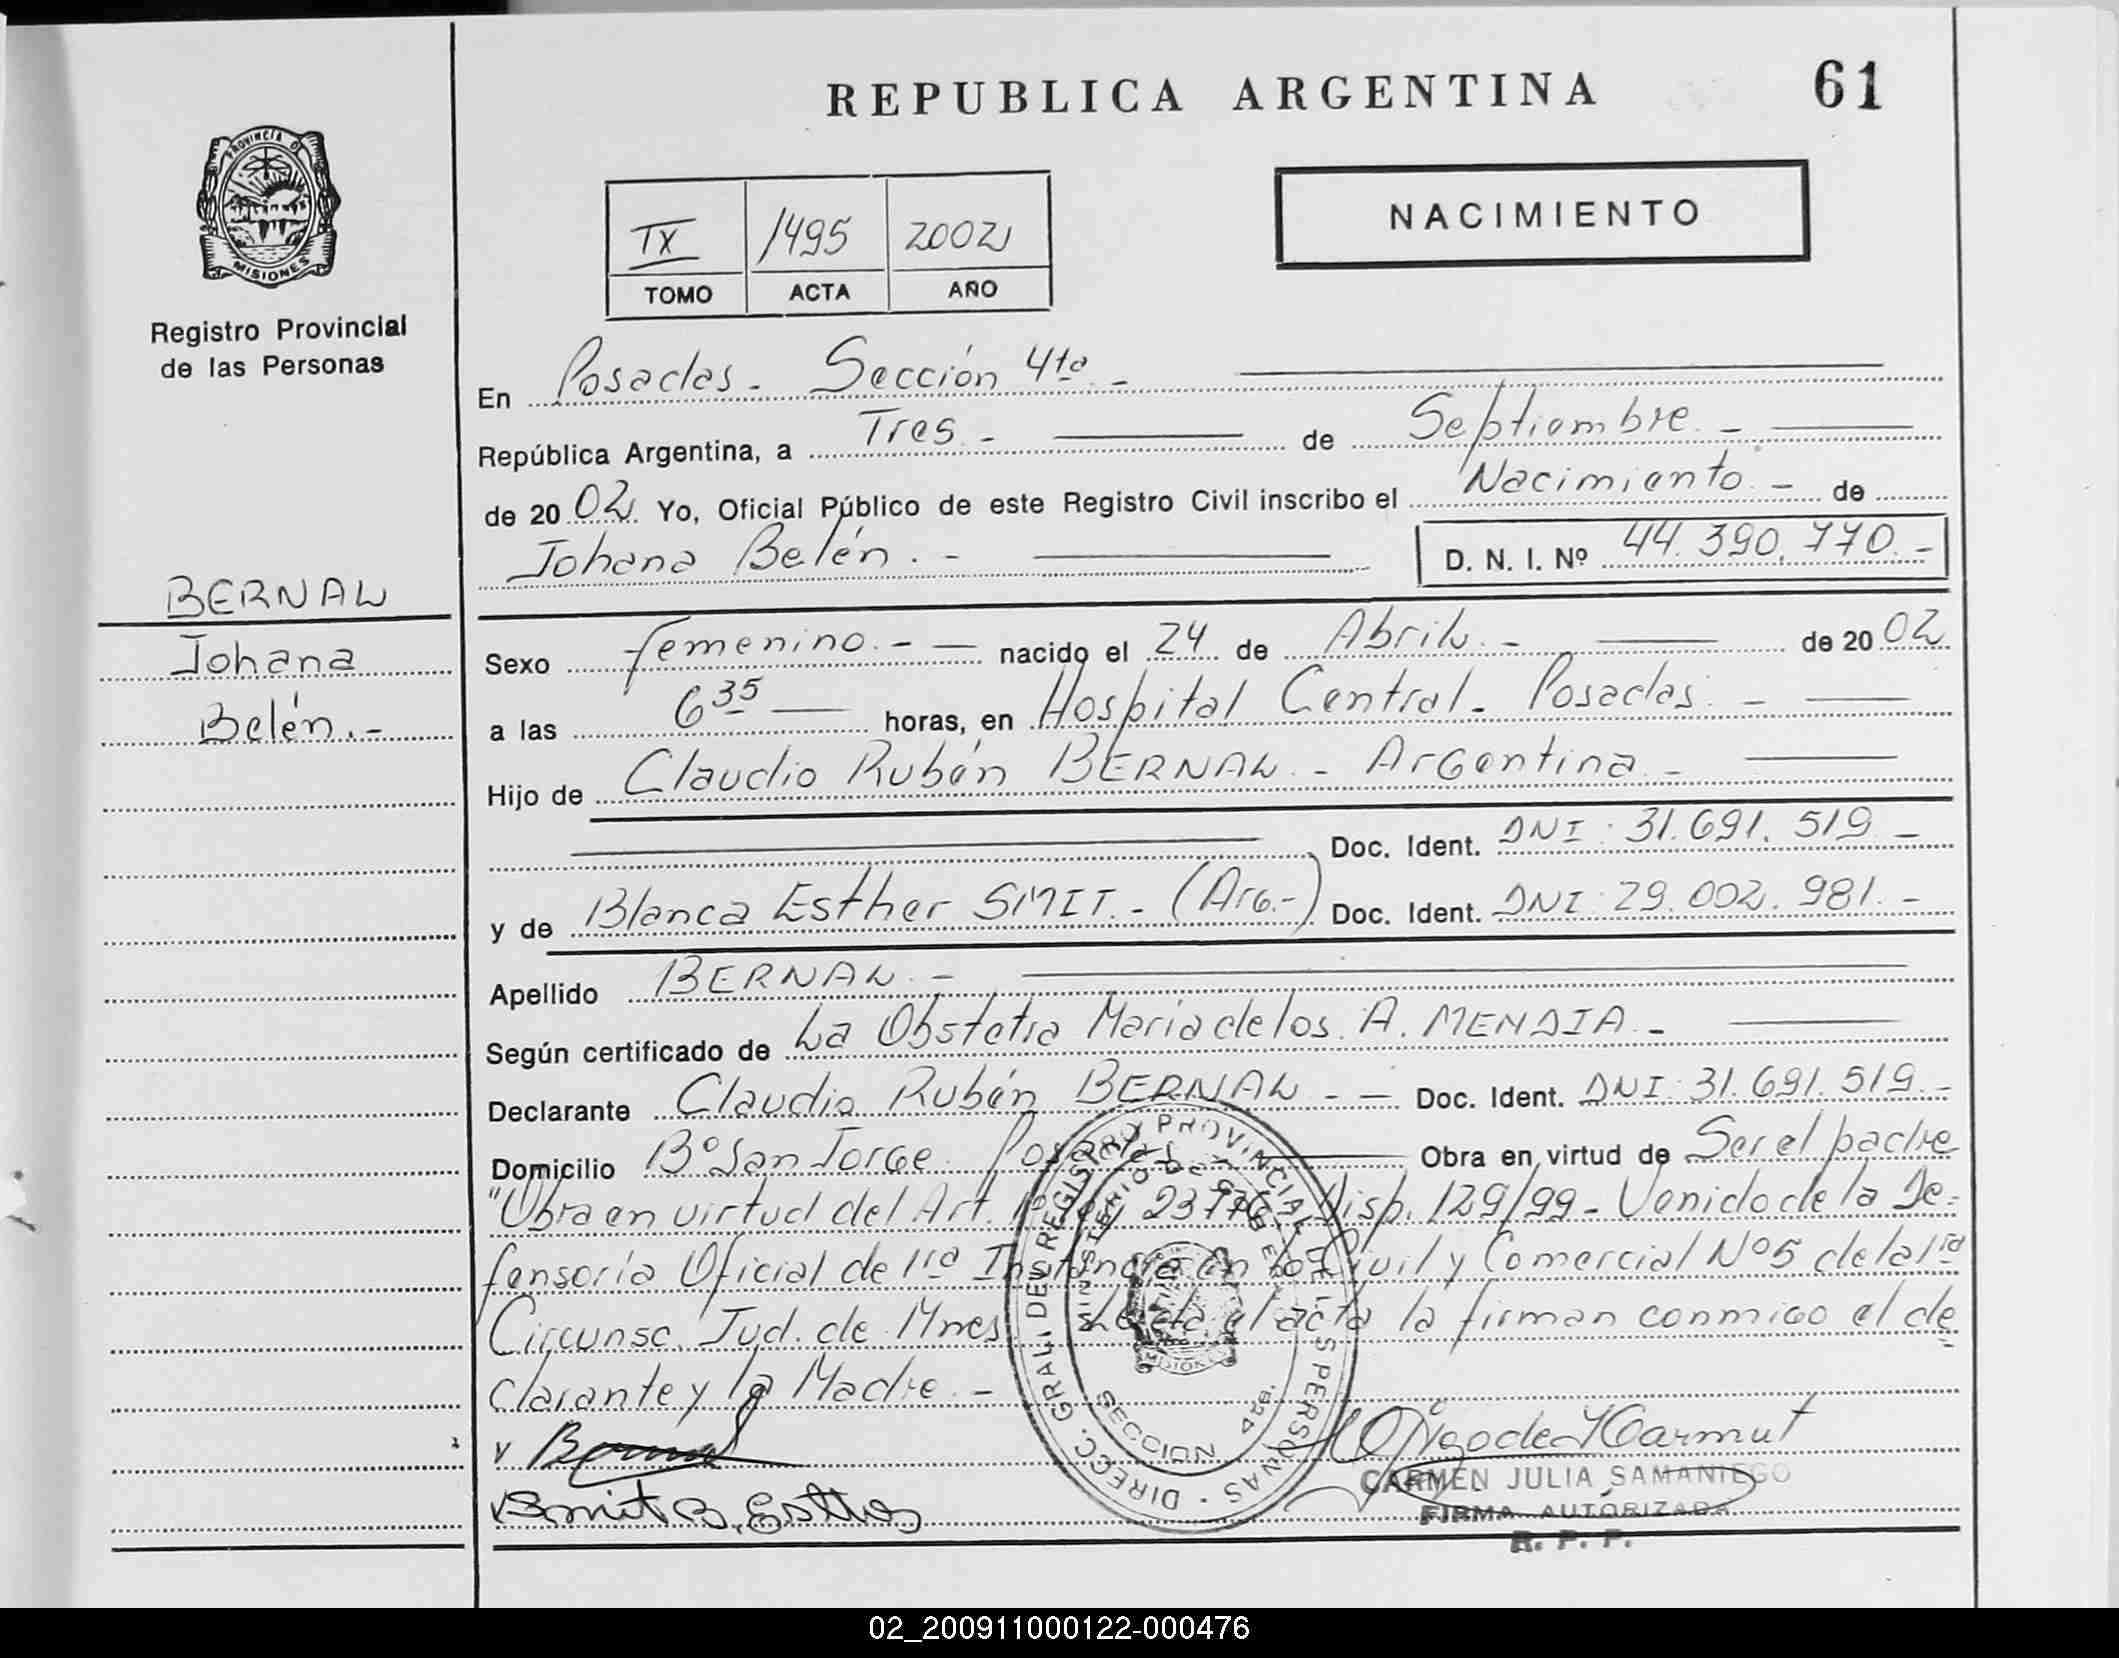 REPUBLICA ARGENTINA
61
PROVINCIA D
MISIONES
Registro Provincial
de las Personas
TX 1495 2002
TOMO ACTA AÑO
NACIMIENTO
En Posadas. Sección 4ta. -
República Argentina, a Tres. - de Septiembre. -
de 2002 Yo, Oficial Público de este Registro Civil inscribo el Nacimiento. - de
Johana Belén. - D. N. I. Nº 44.390.770. -
BERNAL
Johana
Belén. -
Sexo femenino. - nacido el 24 de Abril. - de 2002
a las 6 35 horas, en Hospital Central. Posadas. -
Hijo de Claudio Rubén BERNAL. - Argentina. -
Doc. Ident. DNI: 31.691.519 -
y de Blanca Esther SMIT. - (Arg.-) Doc. Ident. DNI: 29.002.981. -
Apellido BERNAL. -
Según certificado de La Obstetra María de los A. MENDIA. -
Declarante Claudio Rubén BERNAL. - - Doc. Ident. DNI: 31.691.519. -
Domicilio Bº San Jorge. Posadas. - Obra en virtud de Ser el padre
"Obra en virtud del Art. 1º Ley 23776 Disp. 129/99 - Venido de la De=
fensoría Oficial de 1ra Instancia en lo Civil y Comercial Nº 5 de la 1ra
Circunsc. Jud. de Mnes. Leída el acta la firman conmigo el de=
clarante y la Madre. -
Bernal
Smit B. Esther
DIREC. GRAL. DEL REGISTRO PROVINCIAL DE LAS PERSONAS
MINISTERIO DE GOBIERNO
MISIONES
SECCION 4ta.
CARMEN JULIA SAMANIEGO
FIRMA AUTORIZADA
R. P. P.
02_200911000122-000476